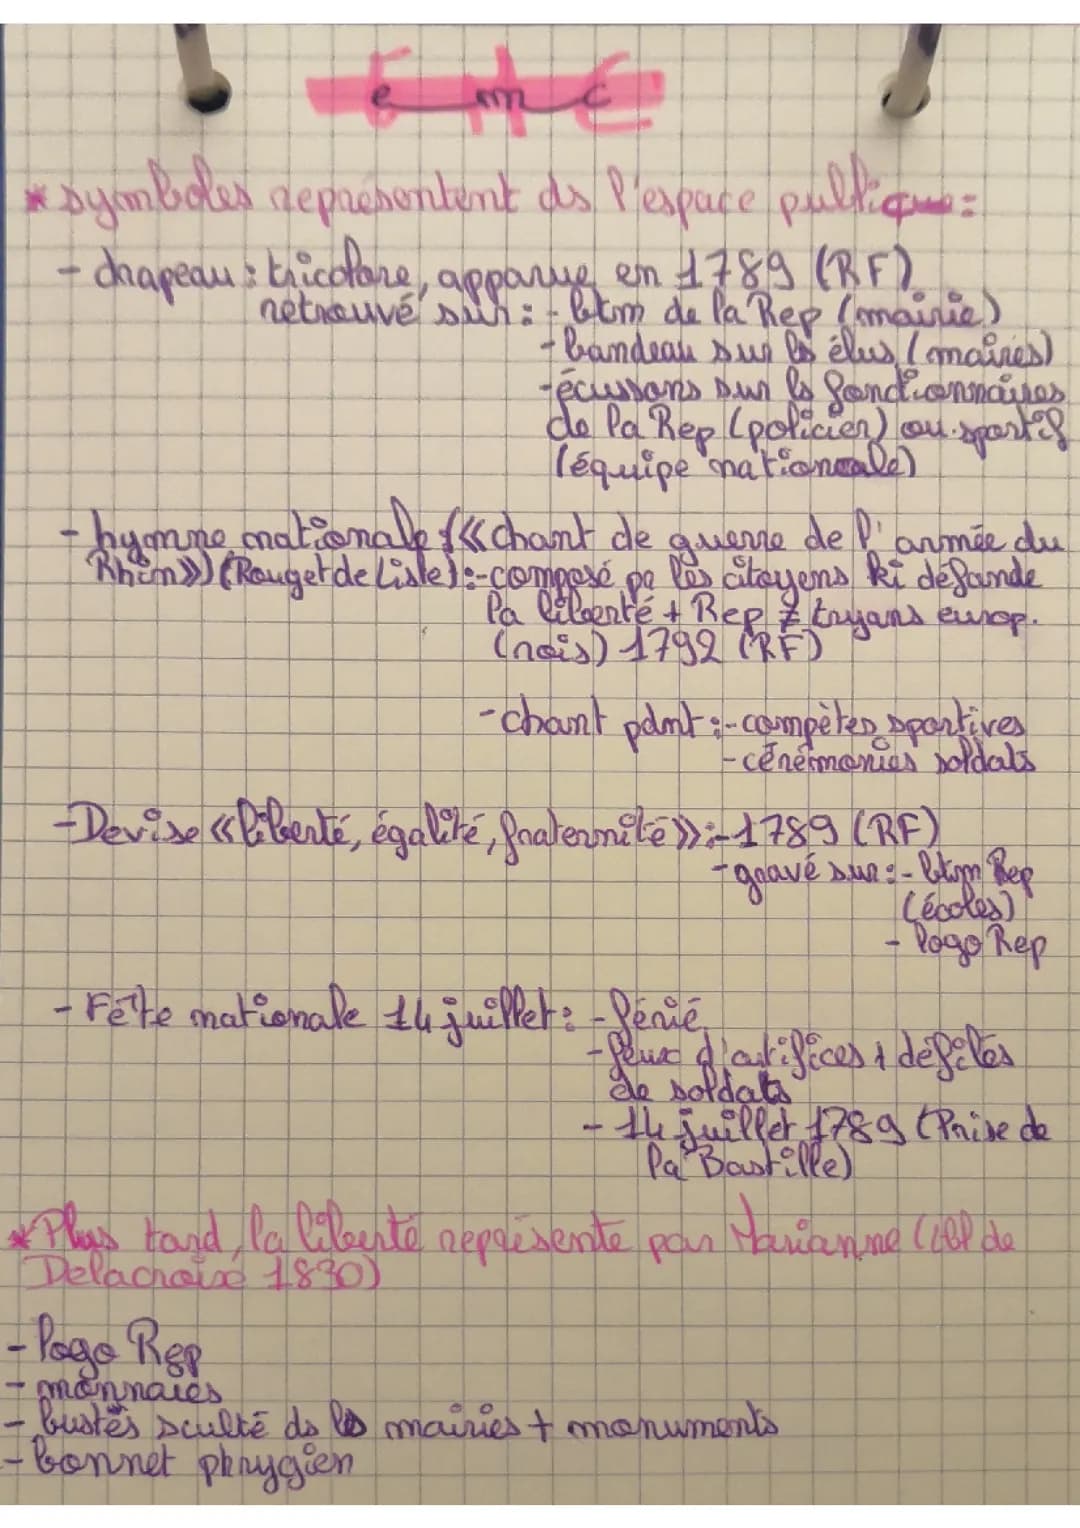 emc
* symboles représentent ds l'espace publique :
- drapeau : tricolore, apparue en 1789 (RF)
retrouvé sur : - btm de la Rep (mairie)
- bandeau sur ls élus (maires)
- écussons sur ls fonctionnaires
de la Rep (policier) ou sportif
(équipe nationale)
- hymne nationale (« chant de guerre de l'armée du
Rhin ») (Rouget de Lisle) : - composé pa les citoyens ki défande
la liberté + Rep ≠ tryans europ.
(rois) 1792 (RF)
- chant pdnt : - compètes sportives
- cérémonies soldats
- Devise « liberté, égalité, fraternité » : - 1789 (RF)
- gravé sur : - btm Rep
(écoles)
- logo Rep
- Fête nationale 14 juillet : - férié
- feux d'artifices + défilés
de soldats
- 14 juillet 1789 (Prise de
la Bastille)
* Plus tard, la liberté représente par Marianne (de
Delacroixe 1830)
- logo Rep
- monnaies
- bustes sculté ds ls mairies + monuments
- bonnet phrygien